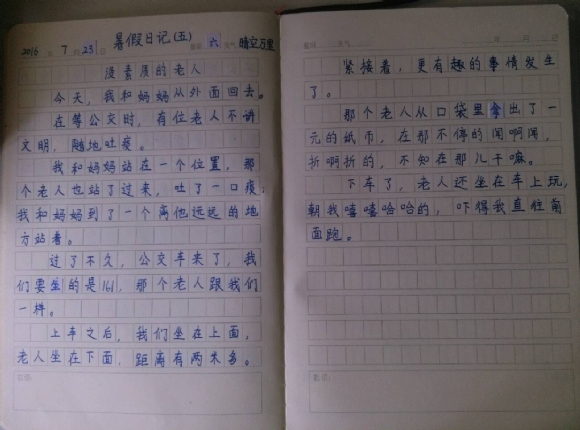 暑假日记(五)
2016年7月23日 星期 六 天气 晴空万里
没素质的老人
今天，我和妈妈从外面回去。
在等公交时，有位老人不讲
文明，随地吐痰。
我和妈妈站在一个位置，那
个老人也站了过来，吐了一口痰，
我和妈妈到了一个离他远远的地
方站着。
过了不久，公交车来了，我
们要坐的是161，那个老人跟我们
一样。
上车之后，我们坐在上面，
老人坐在下面，距离有两米多。
紧接着，更有趣的事情发生
了。
那个老人从口袋里拿出了一
元的纸币，在那不停的闻啊闻，
折啊折的，不知在那儿干嘛。
下车了，老人还坐在车上玩，
朝我嘻嘻哈哈的，吓得我直往前
面跑。